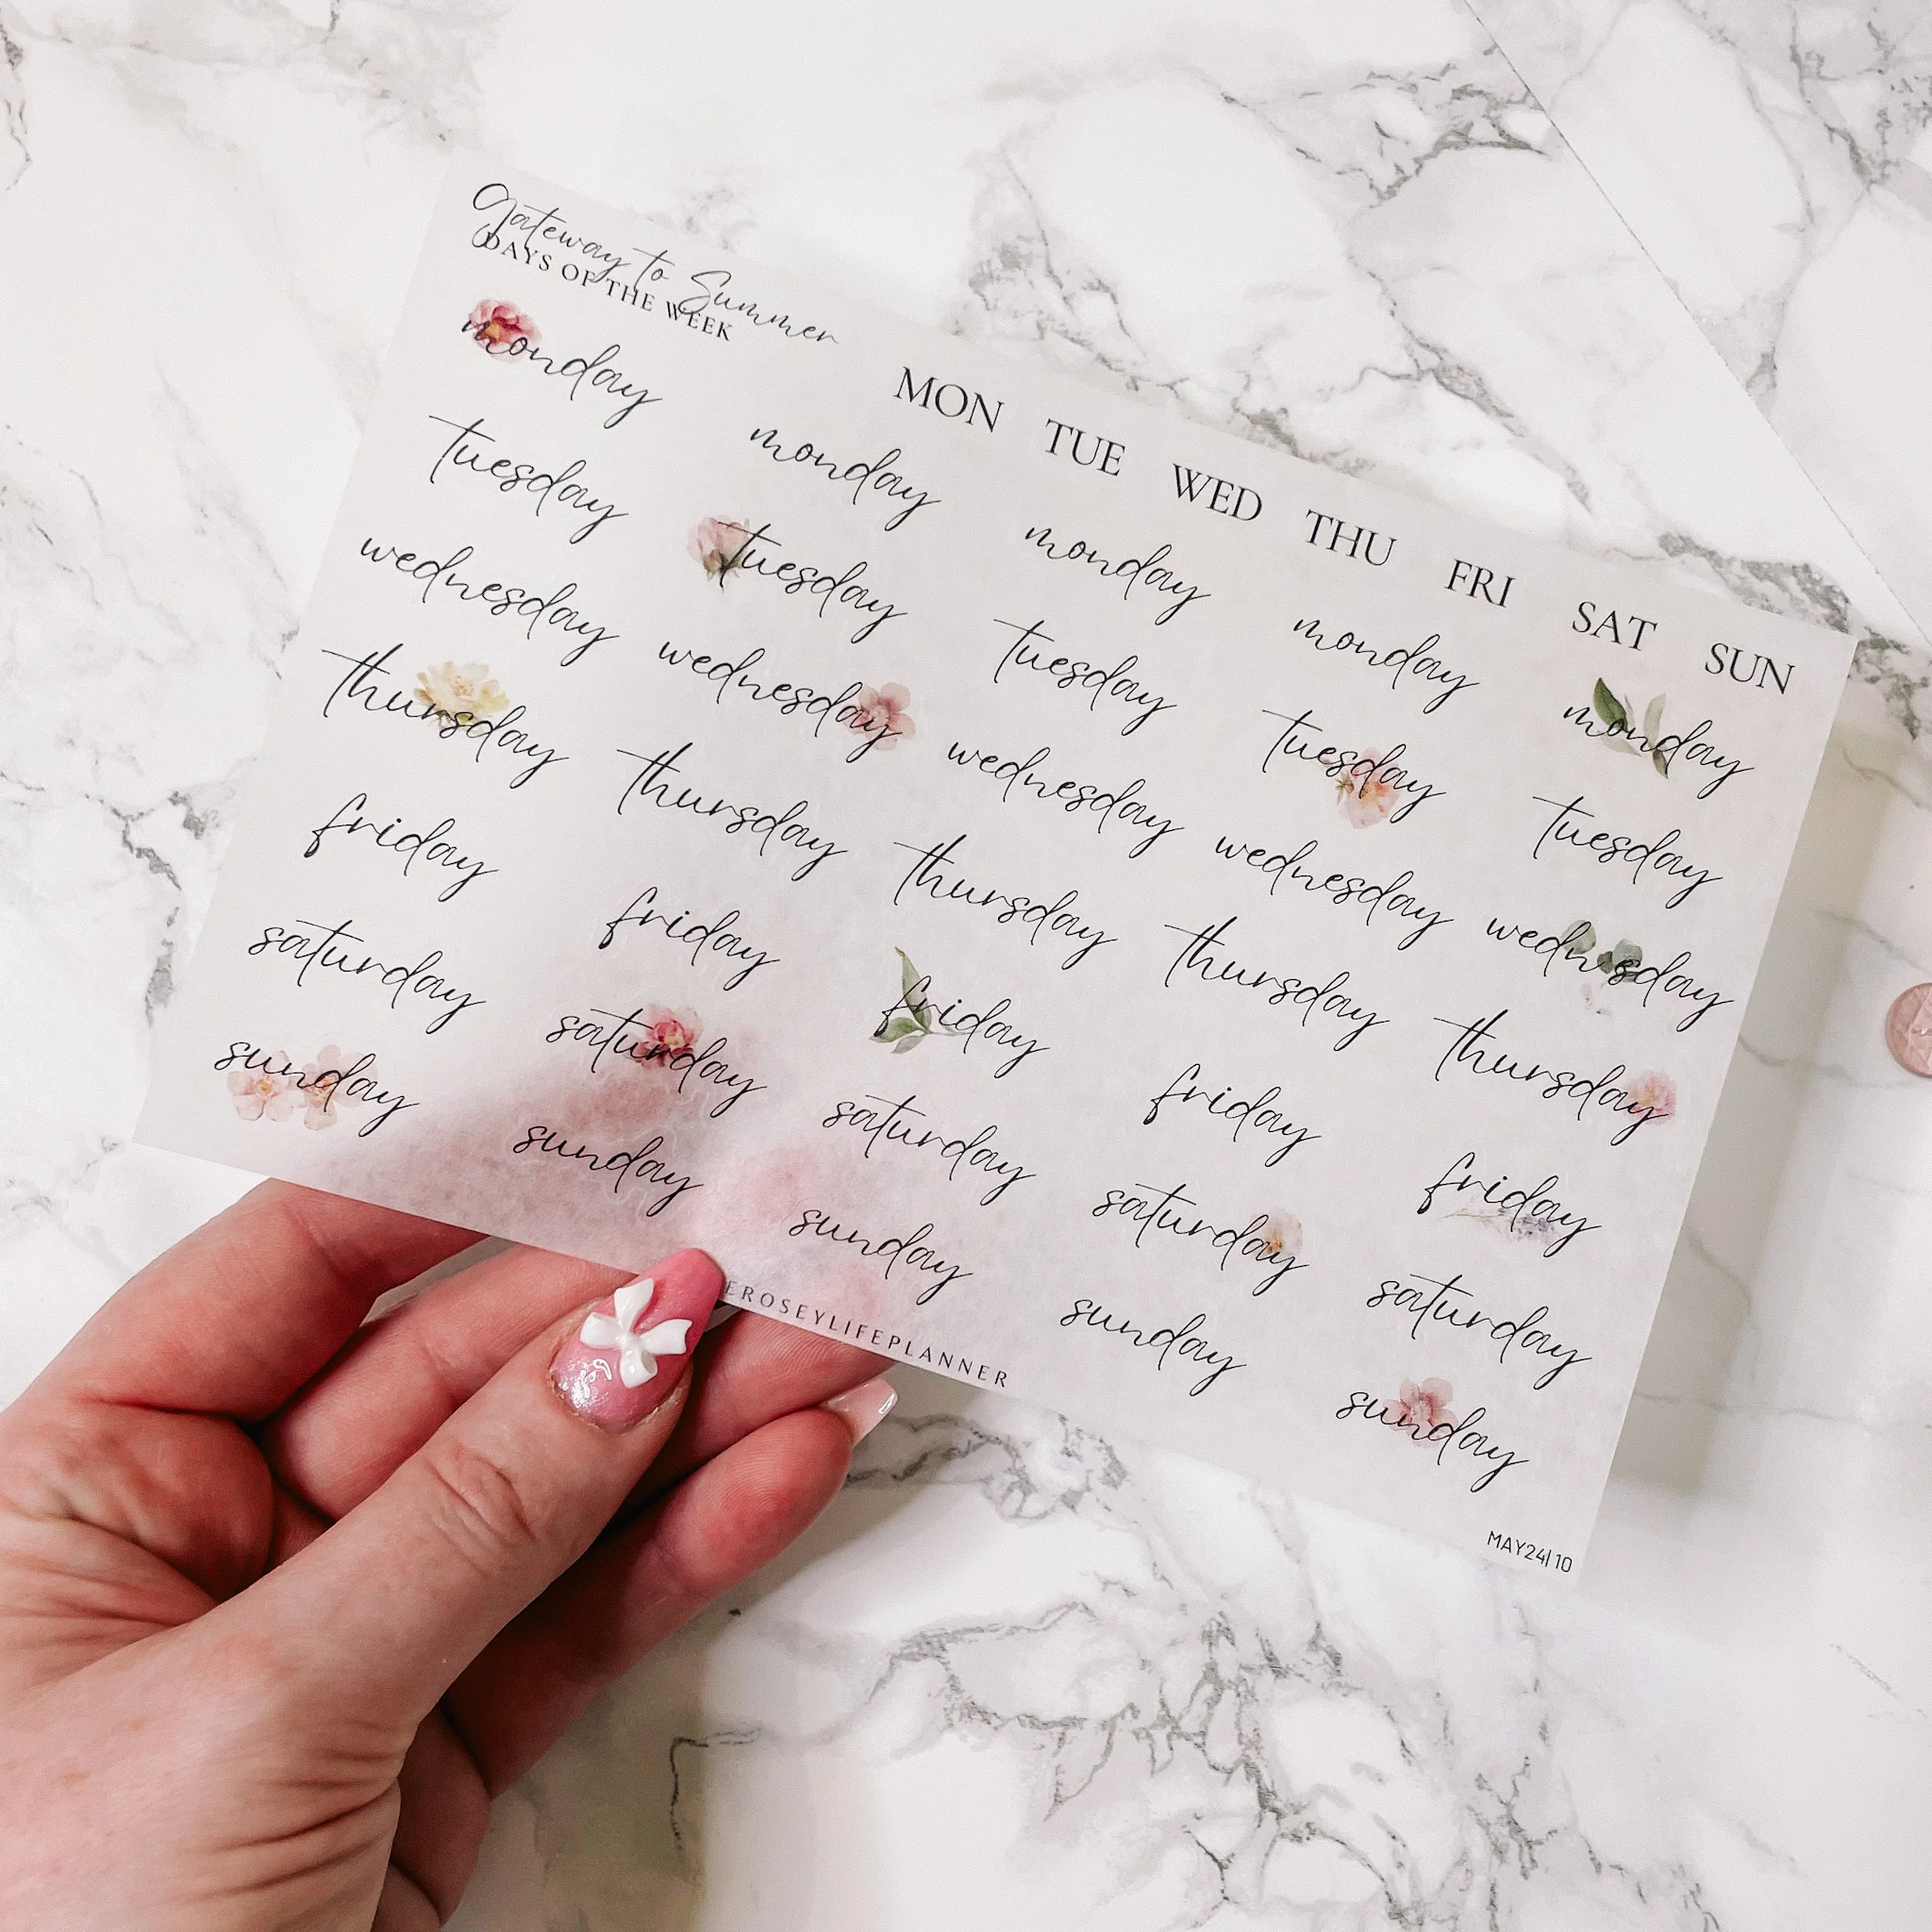 Gateway to Summer
DAYS OF THE WEEK
MON TUE WED THU FRI SAT SUN
monday monday monday monday monday
tuesday tuesday tuesday tuesday tuesday
wednesday wednesday wednesday wednesday wednesday
thursday thursday thursday thursday thursday
friday friday friday friday friday
saturday saturday saturday saturday saturday
sunday sunday sunday sunday sunday
EROSEYLIFEPLANNER
MAY24|10